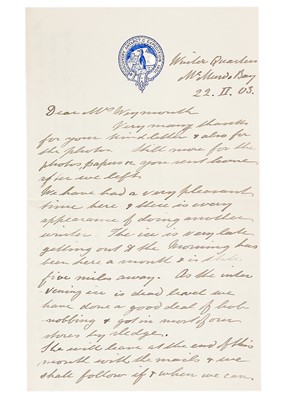 DISCOVERY ANTARCTIC EXPEDITION 1901
Winter Quarters
McMurdo Bay
22. II 03.
Dear Mrs Weymouth
Very many thanks
for your kind letter & also for
the photos. Still more for the
photos, papers &c you sent home
after we left.
We have had a very pleasant
time here & there is every
appearance of doing another
winter. The ice is very late
getting out & the Morning has
been here a month & is still
five miles away. As the inter
vening ice is dead level we
have done a good deal of hob
nobbing & got in most of our
stores by sledge.
She will leave at the end of this
month with the mails & we
shall follow if & when we can.